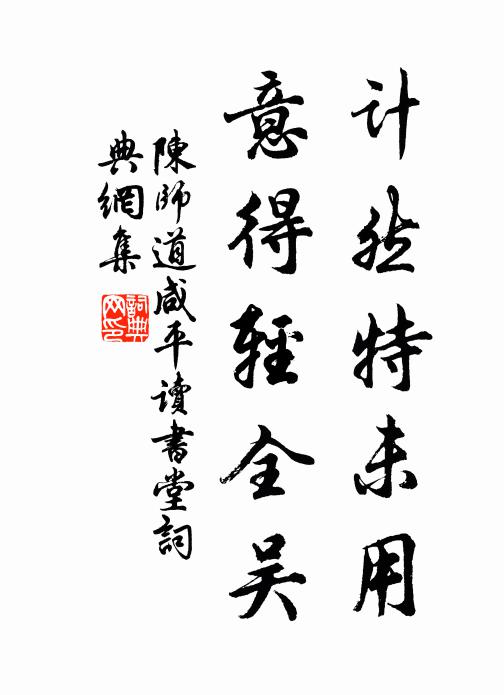 计然特未用
意得轻全吴
陳師道咸平讀書堂詞
典網集
詞典网印